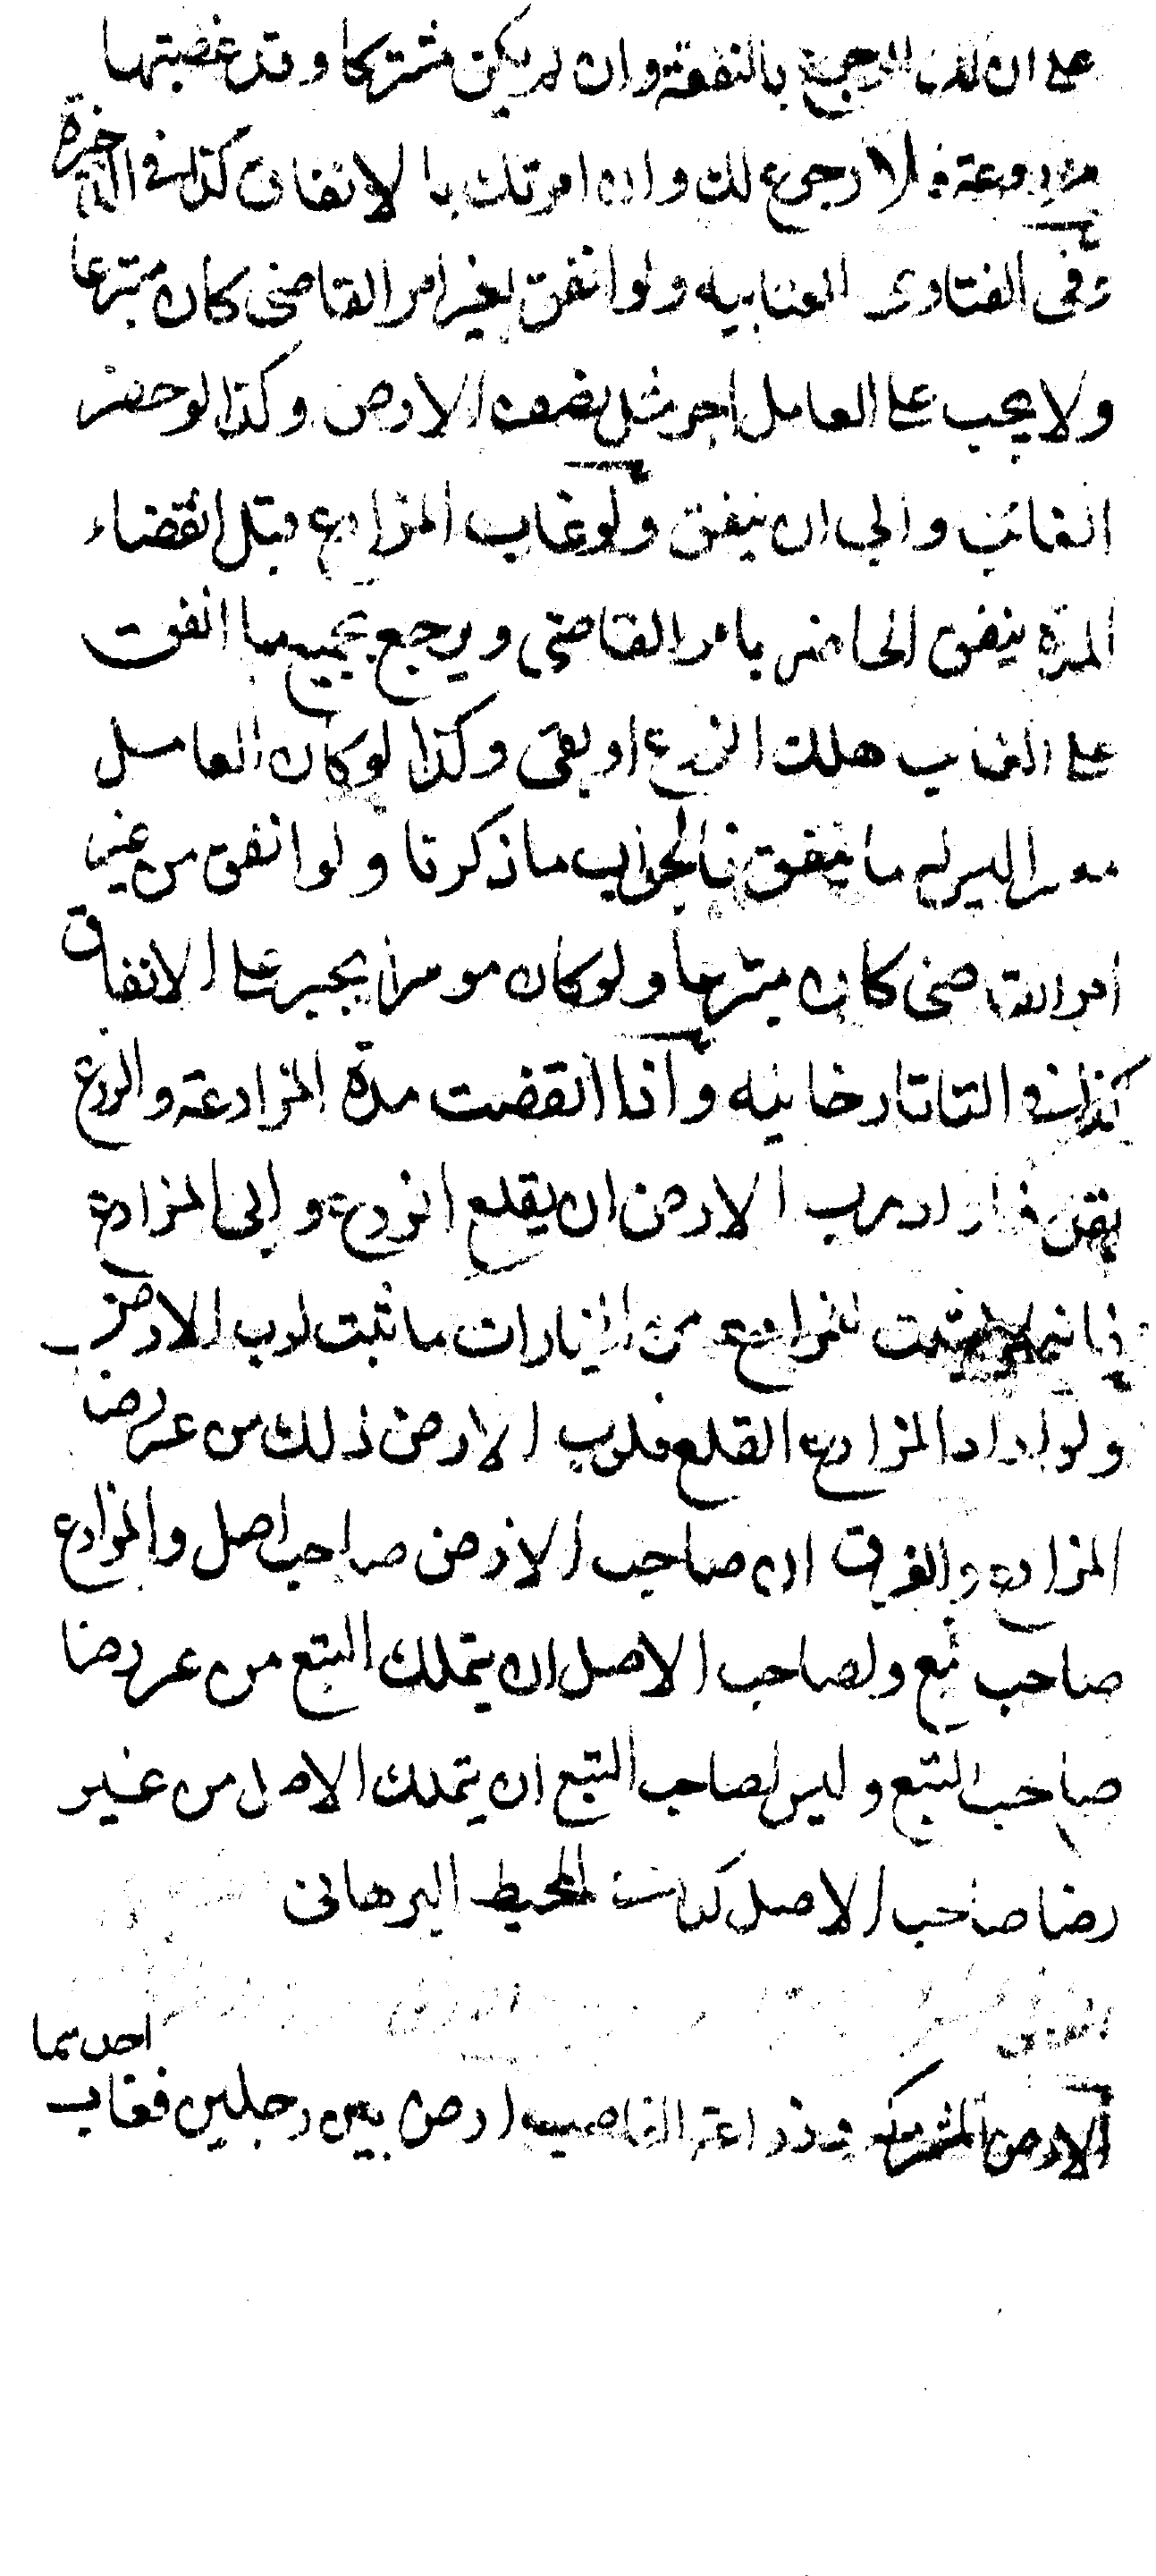 على ان لك الرجوع بالنفقة وان لم يكن مشتركا وقد غصبتها
مزروعة فلا رجوع لك وان امرتك بالانفاق كذا في الذخيرة
وفي الفتاوى العتابيه ولو انفق بغير امر القاضي كان متبرعا
ولا يجب على العامل اجر مثل نصف الارض وكذا لو حضر
الغائب وابي ان ينفق ولو غاب المزارع قبل انقضاء
المدة ينفق الحاضر بامر القاضي ويرجع بجميع ما انفق
على الغايب هلك الزرع او بقى وكذا لو كان العامل
معسرا ليس له ما ينفق فالجواب ما ذكرنا ولو انفق من غير
امر القاضي كان متبرعا ولو كان موسرا يجبر على الانفاق
كذا في التاتارخانيه واذا انقضت مدة المزارعة والزرع
بقل فاراد رب الارض ان يقلع الزرع وابى المزارع
فانه لا يثبت للمزارع من الخيارات ما ثبت لرب الارض
ولو اراد المزارع القلع فلرب الارض ذلك من غير رضا
المزارع والفرق ان صاحب الارض صاحب اصل والمزارع
صاحب تبع ولصاحب الاصل ان يتملك التبع من غير رضا
صاحب التبع وليس لصاحب التبع ان يتملك الاصل من غير
رضا صاحب الاصل كذا في المحيط البرهاني
الارض المشتركه في زراعة الغاصب ارض بين رجلين فغاب احدهما